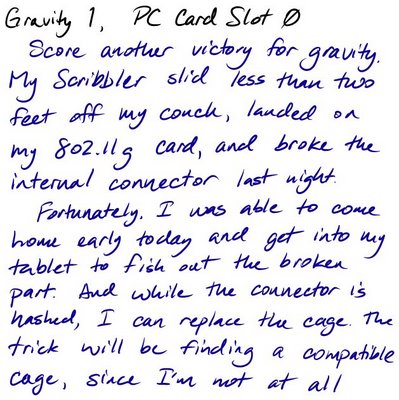 Gravity 1, PC Card Slot 0
Score another victory for gravity.
My Scribbler slid less than two
feet off my couch, landed on
my 802.11g card, and broke the
internal connector last night.
Fortunately, I was able to come
home early today and get into my
tablet to fish out the broken
part. And while the connector is
hashed, I can replace the cage. The
trick will be finding a compatible
cage, since I'm not at all